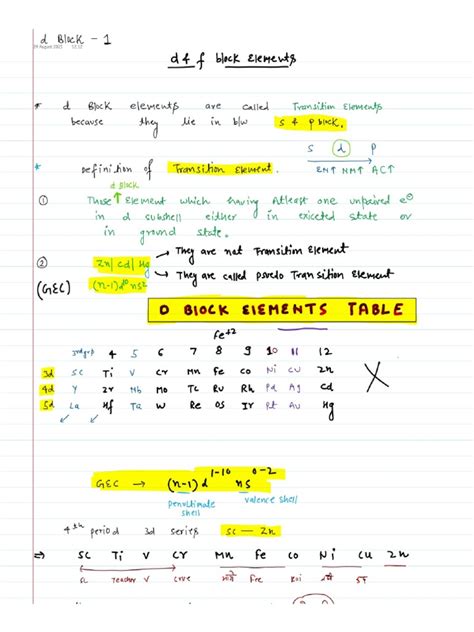 d Block - 1
d & f block Elements
* d Block elements are called Transition Elements
because they lie in b/w s & p block.
s d p
EN↑ NM↑ AC↑
* Definition of Transition Element.
d Block
① Those ↑ Element which having Atleast one unpaired e⊖
in d subshell either in exicted state or
in ground state.
② Zn| Cd| Hg → They are not Transition Element
→ They are called psuedo Transition Element
(GEC) (n-1)d¹⁰ns²
D BLOCK ELEMENTS TABLE
Fe⁺²
3rdgrp 4 5 6 7 8 9 10 11 12
3d Sc Ti V Cr Mn Fe Co Ni Cu Zn
4d Y Zr Nb Mo Tc Ru Rh Pd Ag Cd
5d La Hf Ta W Re Os Ir Pt Au Hg
GEC → (n-1)d¹⁻¹⁰ ns⁰⁻²
penultimate shell
valence shell
4th period 3d series Sc — Zn
⇒ Sc Ti V Cr Mn Fe Co Ni Cu Zn
Teacher V Crue Fee